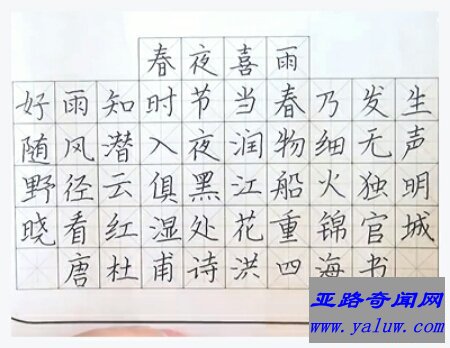 春夜喜雨
好雨知时节当春乃发生
随风潜入夜润物细无声
野径云俱黑江船火独明
晓看红湿处花重锦官城
唐杜甫诗洪四海书
亚路奇闻网
www.yaluw.com